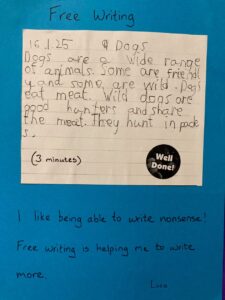 Free Writing
16.1.25 Dogs
Dogs are a wide range
of animals. Some are friendl
y and some are wild. Dogs
eat meat. Wild dogs are
good hunters and share
the meat. They hunt in pack
s.
(3 minutes)
Well
Done!
I like being able to write nonsense!
Free writing is helping me to write
more.